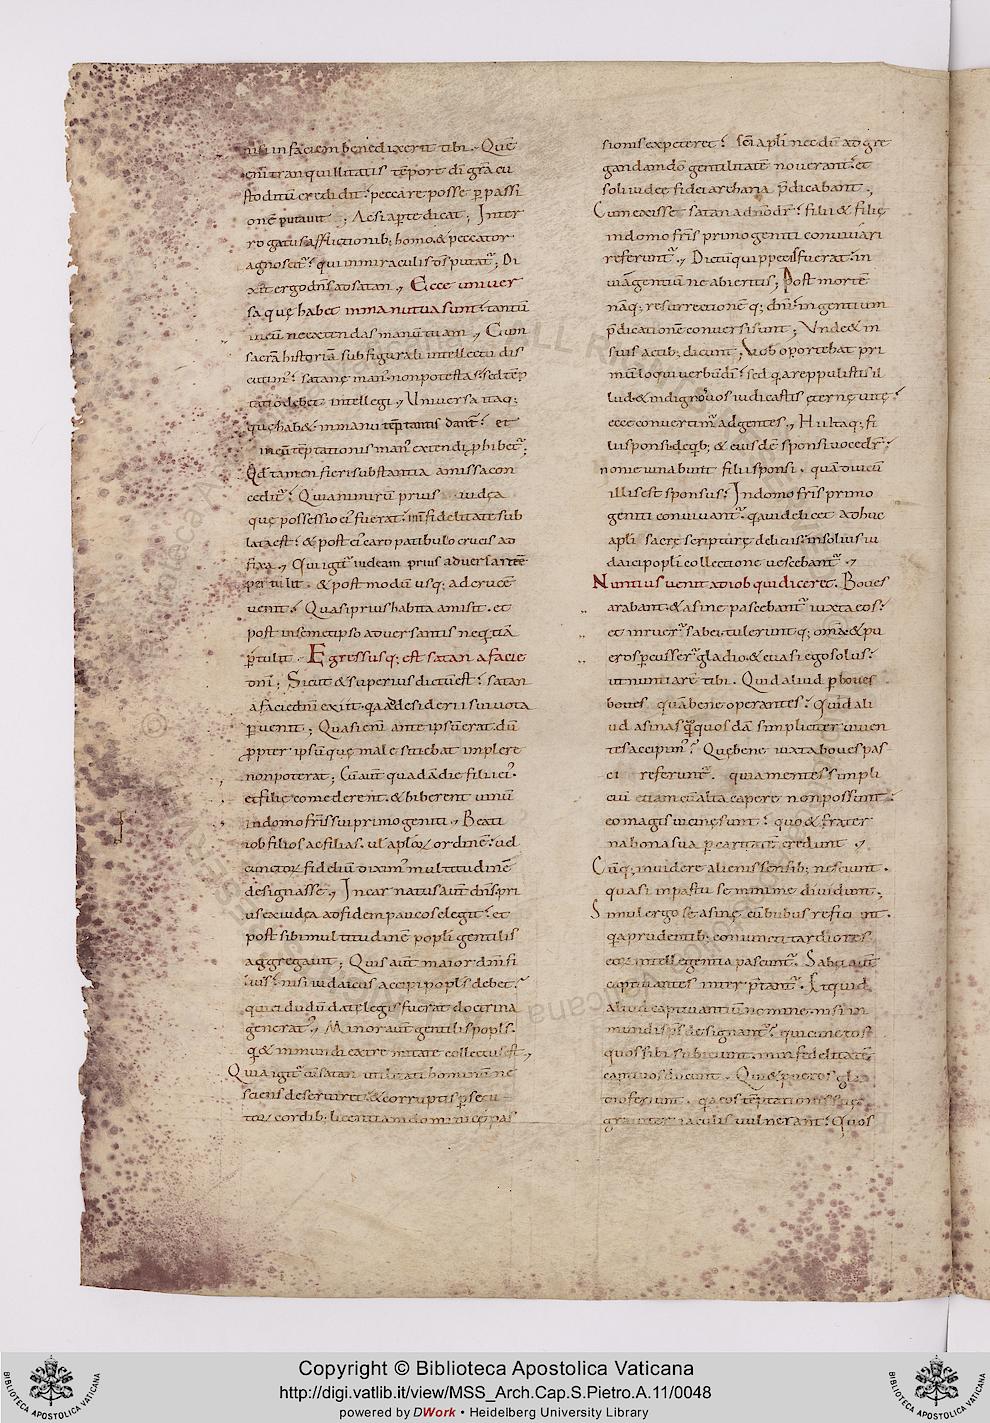 nisi in faciem benedixerit tibi. Que
eni tranquillitatis tempore di gra cu
stoditu credidit. peccare posse p passi
one putauit; Ac si apte dicat; Inter
rogatus afflictionib; homo. & peccator
agnoscit. qui in miraculis ds putat; Di
xit ergo dns ad satan, Ecce univer
sa quę habet in manu tua sunt. tantu
in eu ne extendas manu tuam, Cum
sacra historia sub figurali intellectu dis
cutim. satanę man non potestas. sed tep
tatio debet intellegi, Universa itaq;
quę hab& in manu teptantis dant. et
in eu teptationis man extendi phibet;
Qd tamen fieri substantia amissa con
cedit. Quia nimiru prius iudęa
quę possessio ei fuerat. in infidelitate sub
lata est. & post ei caro patibulo crucis ad
fixa, Qui igit iudeam prius adversante
pertulit. & post modu usq; ad cruce
venit. Quasi prius habita amisit. et
post in semetipso adversantis neqtia
ptulit. Egressusq; est satan a facie
dni; Sicut & superius dictu est. satan
a facie dni exiit. qa ad desiderii sui vota
pvenit; Quasi eni ante ipsu erat. du
ppter ipsu quę male sitiebat implere
non poterat; Cu aut quada die filii ei.
et filię comederent. & biberent vinu
in domo fris sui primogeniti, Beati
iob filios ac filias. ul aplor ordine. ul
cunctor fidelium diximus multitudine
designasse, Incarnatus aut dns pri
us ex iudęa ad fidem paucos elegit. et
post sibi multitudine popli gentilis
aggregavit; Quis aut maior dni fi
lius. nisi iudaicus accipi popls debet.
qui ei dudu datę legis fuerat doctrina
generat, Minor aut gentilis popls.
q & in mundi extremitate collectus est,
Quia igit cu satan utilitati hominum ne
sciens deserviret. & corruptis pse
tor cordib; licentiam dominicę pas
sionis expeteret. sci apli necdu ad gre
ganda do gentilitate noverant. et
soli iudeę fidei archana pdicabant,
Cum exisse satan a dno dr. filii & filię
in domo fris primogeniti convivari
referunt, Dictu qui ppe eis fuerat. in
via gentiu ne abieritis; Post morte
naq; resurrectione q; dni. in gentium
pdicatione conversi sunt; Unde & in
suis actib; dicunt; Vob oportebat pri
mu loqui verbu di. sed q a reppulistis il
lud. & indignos vos iudicastis ęternę vitę.
ecce convertim ad gentes, Hi itaq; fi
lii sponsi. de qb; & eiusde sponsi voce dr.
non ieiunabunt filii sponsi. quadiu cu
illis est sponsus. In domo fris primo
geniti convivant. q a videlicet adhuc
apli sacrę scripturę deliciis. in solius iu
daici popli collectione vescebant,
Nuntius venit ad iob qui diceret. Boves
arabant. & asinę pascebant iuxta eos.
et inruer sabei. tulerunt q; omia & pu
eros pcusser gladio. & evasi ego solus.
ut nuntiare tibi. Quid aliud p boves
boves qua bene operantes. Quid ali
ud asinas qqua quosda simpliciter viven
tes accipim. Quę bene iuxta boves pas
ci referunt. quia mentes simpli
cium etiam cu alta capere non possunt.
eo magis vicinę sunt. quo & frater
na bona sua p caritate credunt,
Cuq; invidere alienis sensib; nesciunt.
quasi in pastu se minime dividunt,
Simul ergo se asinę cu bubus reficiunt.
q a prudentib; coniuncti tardiores
eor intellegentia pascunt. Sabei aut
captivantes interptant. Et quid
aliud captivantium nomine. nisi in
mundi sps designant. qui cunctos
quos sibi subiciunt. in infidelitate
captivos ducunt. Qui & pueros gla
dio feriunt. q a eos teptationis suę
graviter iaculis vulnerant. Quos
Copyright © Biblioteca Apostolica Vaticana
http://digi.vatlib.it/view/MSS_Arch.Cap.S.Pietro.A.11/0048
powered by DWork • Heidelberg University Library